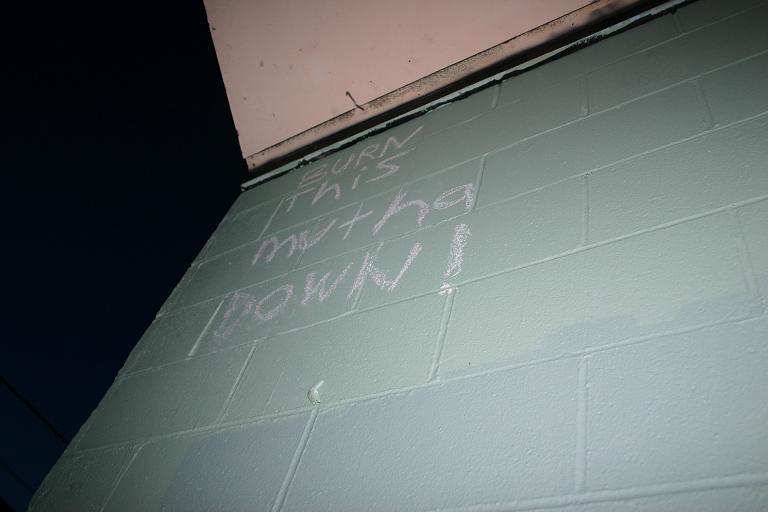 BURN
This
mutha
DOWN!